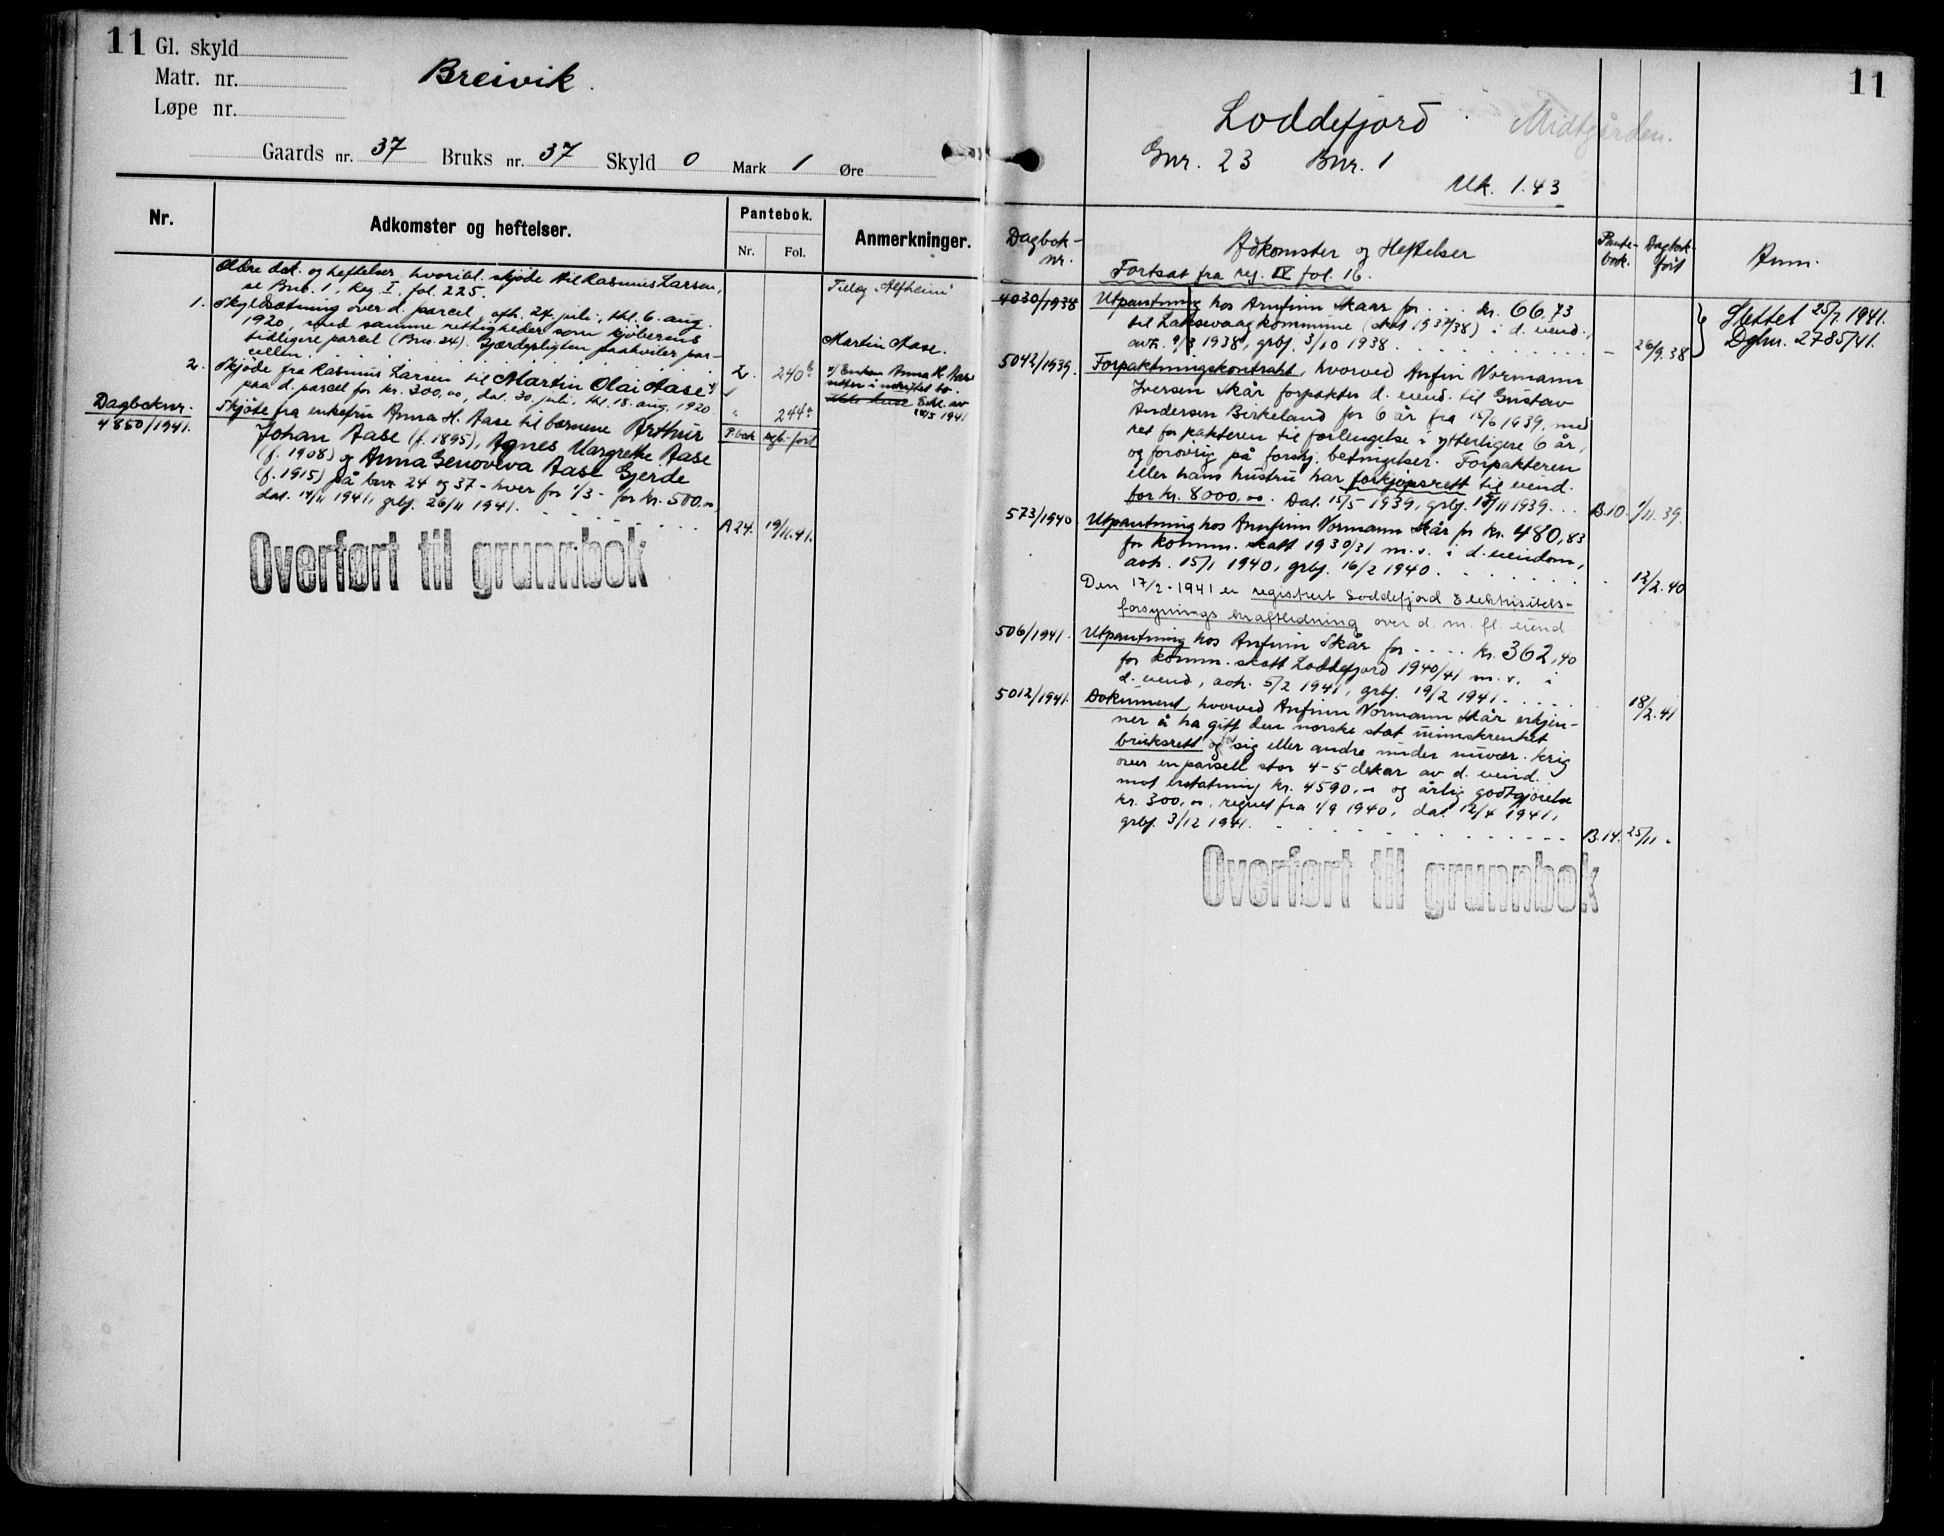 11
Gl. skyld
Matr. nr.
Løpe nr.
Breivik.
Gaards nr. 37 Bruks nr. 37 Skyld 0 Mark 1 Øre
Nr.
Adkomster og heftelser.
Pantebok.
Nr. Fol.
Anmerkninger.
Ældre dok. og heftelser, hvoribl. skjøde til Rasmus Larsen,
se Bno. 1, Reg. I, fol. 225.
Tillæg "Alfheim"
1. Skyldsætning over d. parcel, afh. 24. juli, thl. 6. aug.
1920, med samme rettigheder som kjøberens
tidligere parcel (Bno. 24). Gjærdepligten paahviler par-
cellen.
2. 240 b
Martin Aase.
2. Skjøde fra Rasmus Larsen til Martin Olai Aase
paa d. parcel for kr. 300,00, dat. 30. juli, thl. 18. aug. 1920.
" 244 a
Enken Anna H. Aase
sitter i uskiftet bo.
Skl. av
1941
Dagboknr.
4850/1941.
P.bok dgb.-ført
Skjøte fra enkefru Anna H. Aase til barnene Arthur
Johan Aase (f. 1895), Agnes Margrethe Aase
(f. 1908) og Anna Genoveva Aase Gjerde
(f. 1915) på bnr. 24 og 37 - hver for 1/3 - for kr. 500,00,
dat. 14/11 1941, grbf. 26/11 1941.
A 24. 19/11.41.
Overført til grunnbok
11
Loddefjord
Midtgården.
Gnr. 23 Bnr. 1
Mk. 1.43
Dagbok-
nr.
Adkomster og Heftelser
Pante-
bok.
Dagbok
ført
Anm.
Fortsat fra reg. IV fol. 16.
4030/1938 Utpantning hos Arnfinn Skaar for . . . kr. 66,73
til Laksevaag kommune (skat 1937/38) i d. eiend.,
avh. 9/3 1938, grbf. 3/10 1938.
- 26/9.38
Slettet 25/7 1941.
Dgbnr. 2785/41.
5042/1939. Forpaktningskontrakt, hvorved Anfin Normann
Iversen Skår forpakter d. eiend. til Gustav
Andersen Birkeland for 6 år fra 15/6 1939, med
ret for pakteren til forlengelse i ytterligere 6 år,
og forøvrig på forskj. betingelser. Forpakteren
eller hans hustru har forkjøpsrett til eiend.
for kr. 8000,00. Dat. 15/5 1939, grbf. 15/11 1939. . .
B.10. 1/11.39.
573/1940 Utpantning hos Arnfinn Normann Skår for kr. 480,83
for komm. skatt 1930/31 m.v. i d. eiendom,
avh. 15/1 1940, grbf. 16/2 1940.
12/2.40
Den 17/2-1941 er registrert Loddefjord Elektrisitets-
forsynings kraftledning over d. m. fl. eiend.
506/1941. Utpantning hos Anfinn Skår for . . . . kr. 362,40
for komm. skatt Loddefjord 1940/41 m.v. i
d. eiend., avh. 5/2 1941, grbf. 19/2 1941.
18/2.41
5012/1941. Dokument, hvorved Anfinn Normann Skår erkjen-
ner å ha gitt den norske stat uinnskrenket
bruksrett for sig eller andre under nuvær. krig
over en parsell stor 4-5 dekar av d. eiend.
mot erstatning kr. 4590,- og årlig godtgjørelse
kr. 300,00, regnet fra 1/9 1940, dat. 12/4 1941,
grbf. 3/12 1941.
B.14. 25/11 "
Overført til grunnbok